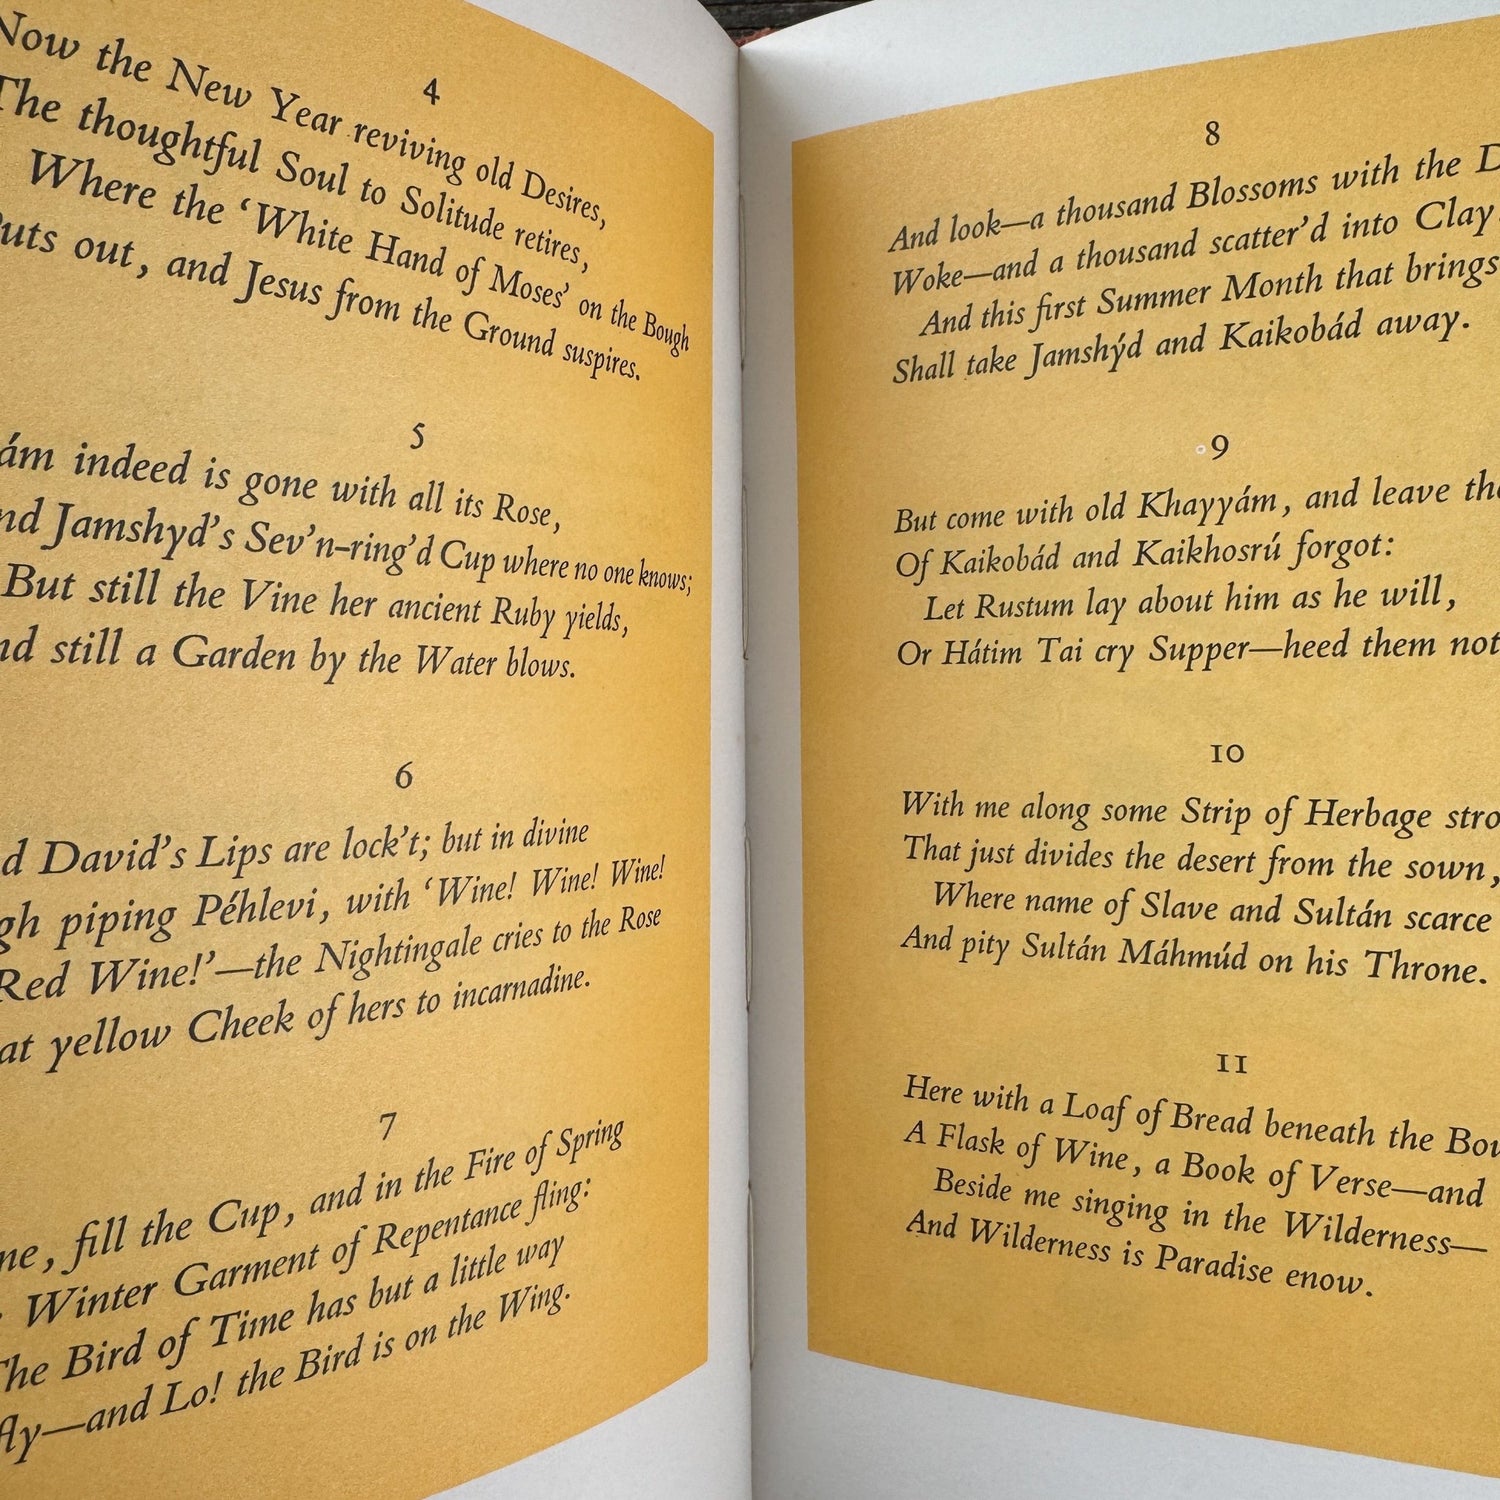 4
Now the New Year reviving old Desires,
The thoughtful Soul to Solitude retires,
Where the ‘White Hand of Moses’ on the Bough
Puts out, and Jesus from the Ground suspires.
5
indeed is gone with all its Rose,
Jamshyd’s Sev’n-ring’d Cup where no one knows;
But still the Vine her ancient Ruby yields,
still a Garden by the Water blows.
6
David’s Lips are lock’t; but in divine
piping Péhlevi, with ‘Wine! Wine! Wine!
Red Wine!’—the Nightingale cries to the Rose
yellow Cheek of hers to incarnadine.
7
fill the Cup, and in the Fire of Spring
Winter Garment of Repentance fling:
The Bird of Time has but a little way
fly—and Lo! the Bird is on the Wing.
8
And look—a thousand Blossoms with the
Woke—and a thousand scatter’d into Clay
And this first Summer Month that brings
Shall take Jamshýd and Kaikobád away.
9
But come with old Khayyám, and leave the
Of Kaikobád and Kaikhosrú forgot:
Let Rustum lay about him as he will,
Or Hátim Tai cry Supper—heed them not
10
With me along some Strip of Herbage
That just divides the desert from the sown,
Where name of Slave and Sultán scarce
And pity Sultán Máhmúd on his Throne.
11
Here with a Loaf of Bread beneath the
A Flask of Wine, a Book of Verse—and
Beside me singing in the Wilderness—
And Wilderness is Paradise enow.